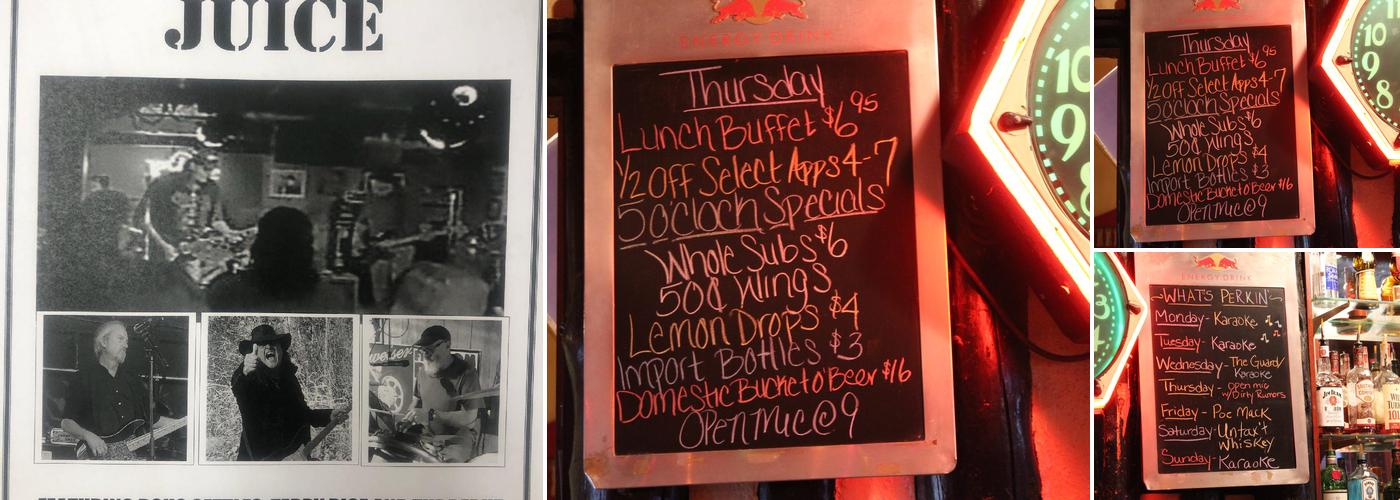 JUICE
Budweiser
ENERGY DRINK
Thursday
Lunch Buffet $6 95
1/2 Off Select Apps 4-7
5 o'clock Specials
Whole Subs $6
50¢ Wings
Lemon Drops $4
Import Bottles $3
Domestic Bucket o' Beer $16
Open Mic @ 9
10
9
8
Thursday
Lunch Buffet $6 95
1/2 Off Select Apps 4-7
5 o'clock Specials
Whole Subs $6
50¢ Wings
Lemon Drops $4
Import Bottles $3
Domestic Bucket o' Beer $16
Open Mic @ 9
10
9
8
ENERGY DRINK
WHAT'S PERKIN'
Monday - Karaoke
Tuesday - Karaoke
Wednesday - The Guard/
Karaoke
Thursday - Open mic
w/Dirty Rumors
Friday - Poe Mack
Saturday - Untax't
Whiskey
Sunday - Karaoke
3
4
JIM BEAM